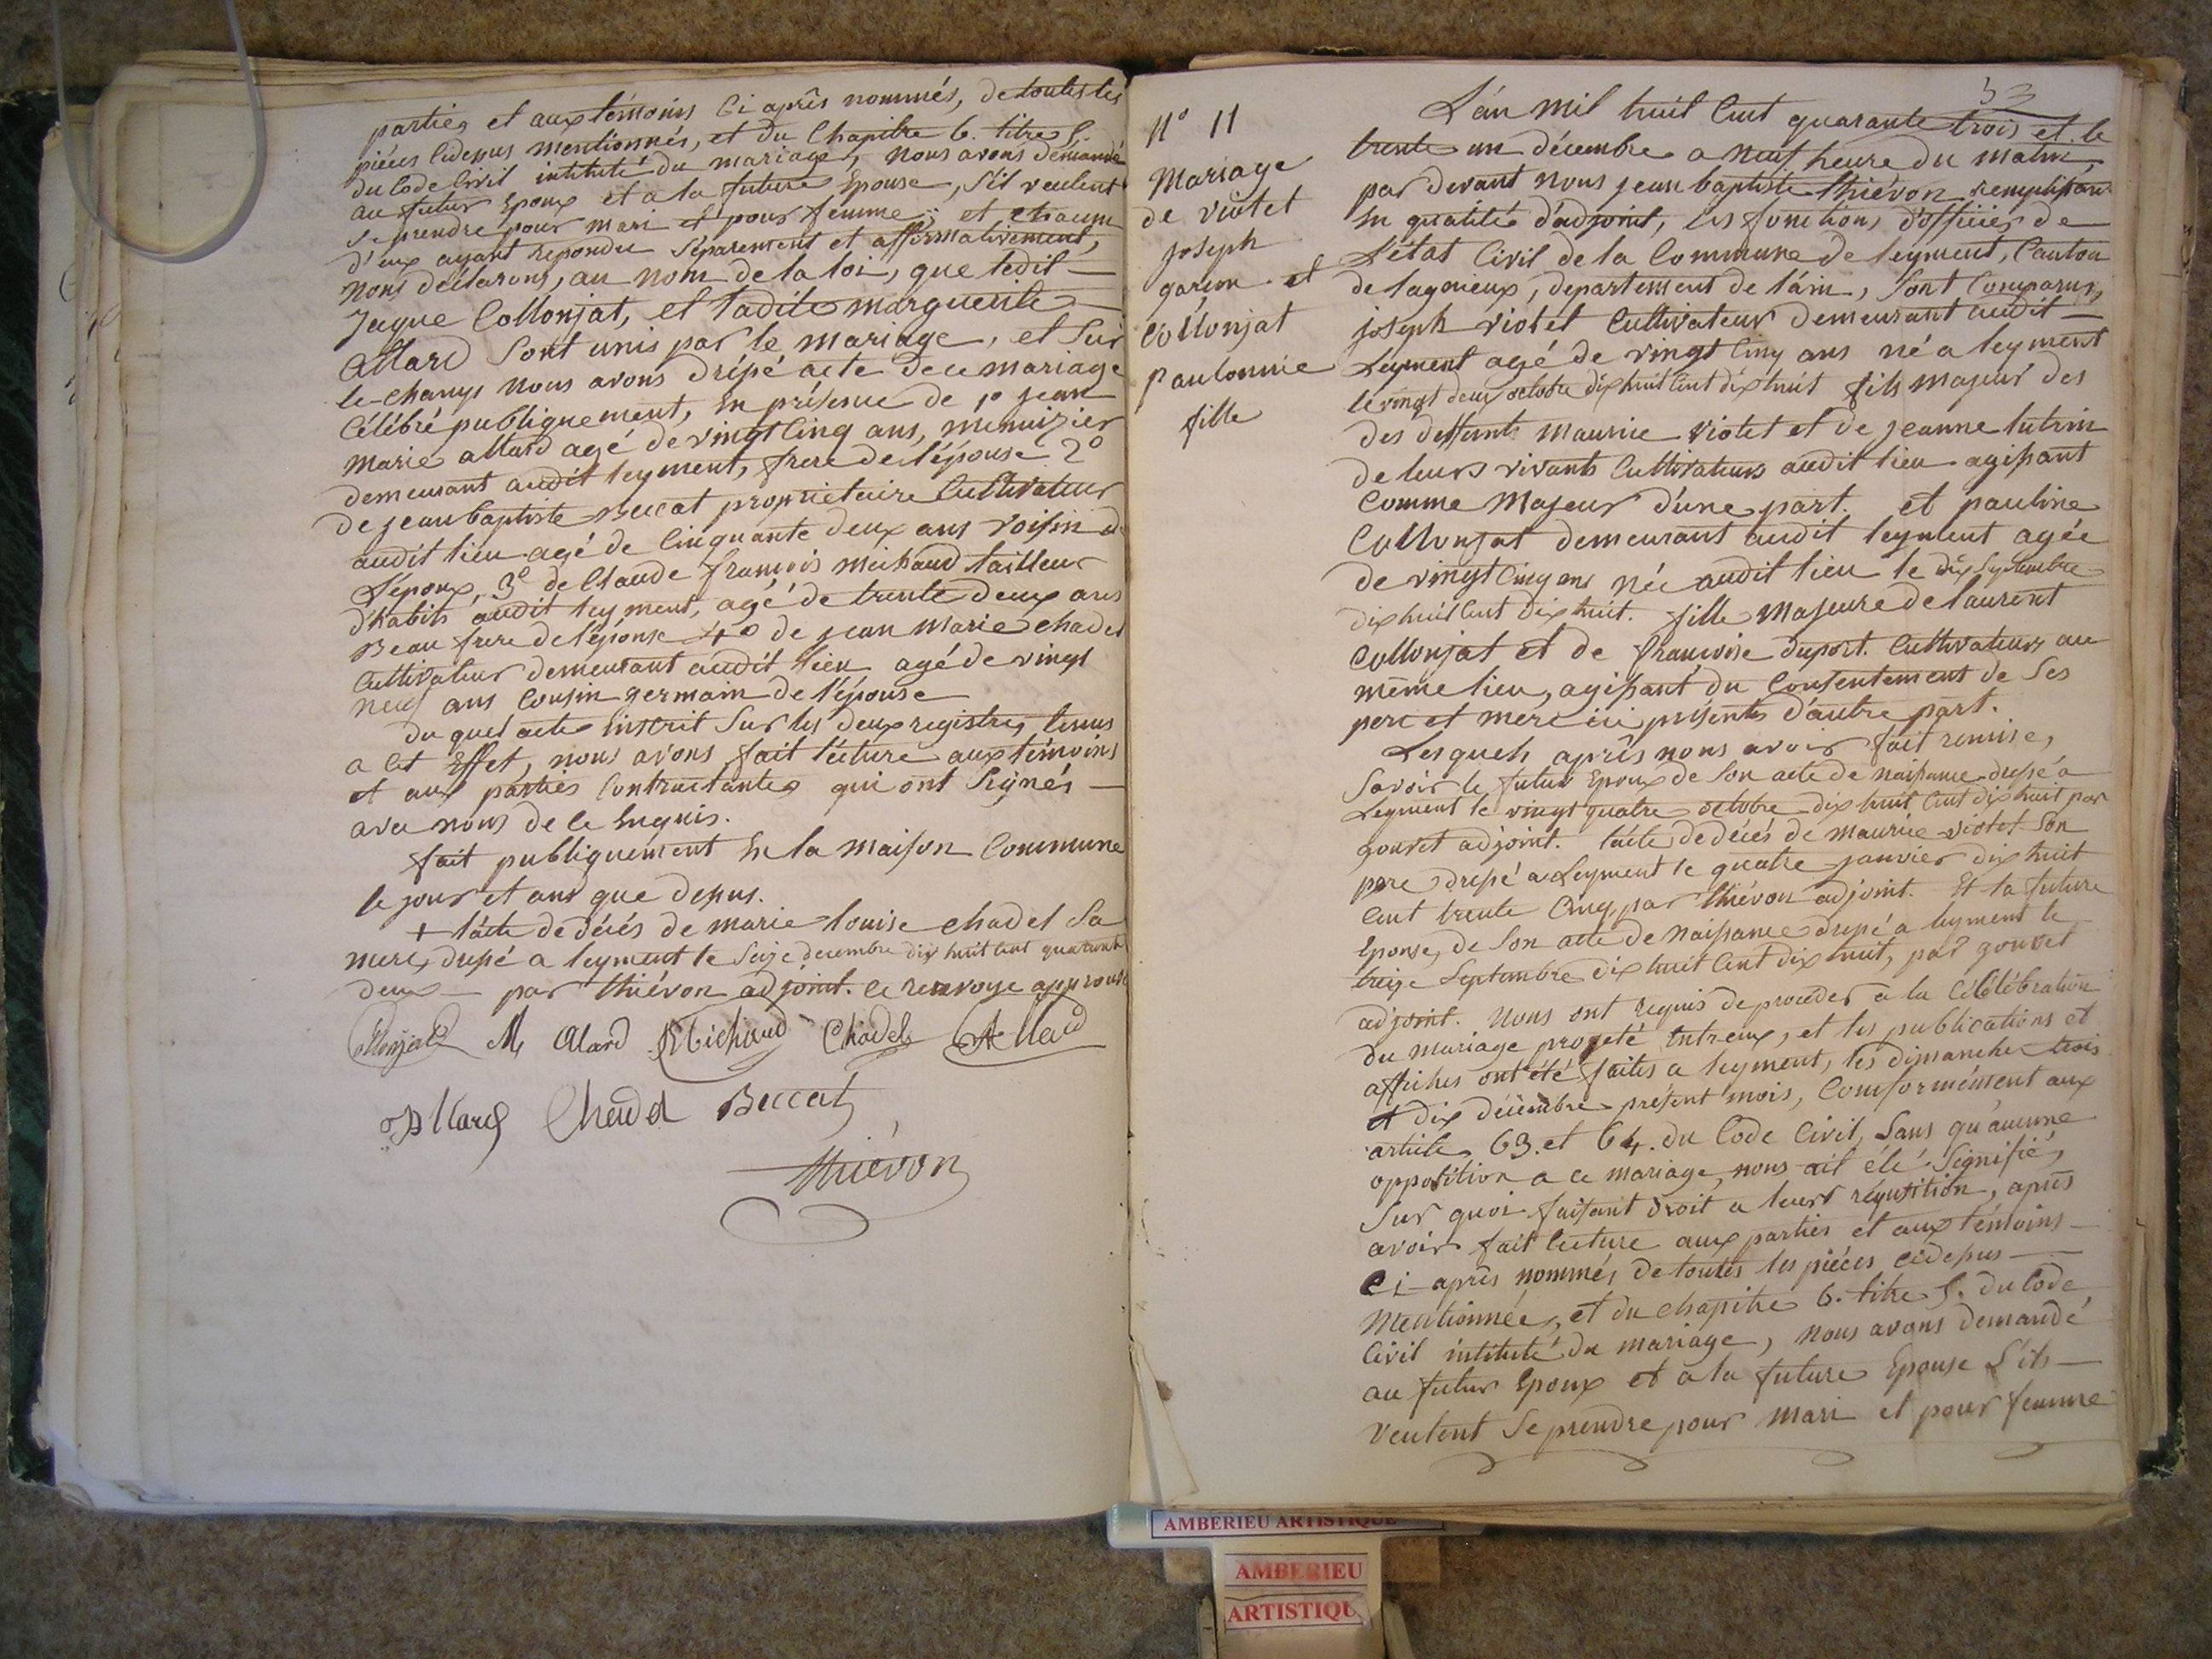 parties et aux témoins Ci après nommés, de toutes les
piéces Cidessus mentionnés, et du Chapitre 6. titre 5.
du Code Civil intitulé du mariage, nous avons démandé
au futur Epoux et a la future Epouse, s'il veulent
se prendre pour mari et pour femme; et chacun
d'eux ayant repondu séparement et affirmativement,
nous déclarons, au nom de la loi, que ledit
Jaque Collonjat, et ladite marguerite
allard sont unis par le mariage, et sur
le-champs nous avons dressé acte de ce mariage
Célébré publiquement, en présence de 1° jean
marie allard agé de vingt Cinq ans, menuizier
demeurant audit leyment, frere de l'épouse 2°
de jean baptiste Beccat proprietaire Cultivateur
audit lieu agé de Cinquante deux ans voisin de
L'epoux, 3° de Claude françois michaud tailleur
d'habits audit leyment, agé de trente deux ans
Beau frere de l'épouse 4° de jean marie chadel
Cultivateur demeurant audit lieu agé de vingt
neuf ans Cousin germain de l'épouse
du quel acte inscrit sur les deux registres tenus
a Cet Effet, nous avons fait lécture aux témoins
et aux parties Contractantes qui ont signés
avec nous de ce Enquis.
fait publiquement En la maison Commune
le jour et ans que dessus.
+ l'acte de décés de marie louise chadel sa
mere, dressé a leyment le seize decembre dix huit Cent quarante
deux par thiévon adjoint. ce renvoye approuvé
Collonjat M Alard Michaud Chadel Allard
allard Chadel Beccat
thiévon
53
N° 11
Mariage
de violet
joseph
garçon et
Collonjat
paulonnie
fille
L'an mil huit Cent quarante trois et le
trente un décembre a neuf heure du matin,
par devant nous jean baptiste thiévon remplissant
En qualité d'adjoint, les fonctions d'officier de
L'état Civil de la Commune de leyment, Canton
de lagnieux, departement de l'ain, sont Comparus,
joseph violet Cultivateur demeurant audit
Leyment agé de vingt Cinq ans né a leyment
le vingt deux octobre dix huit Cent dix huit fils majeur des
des deffunts maurice violet et de jeanne lutrin
de leurs vivants Cultivateurs audit lieu agissant
Comme majeur d'une part. et pauline
Collonjat demeurant audit leyment agée
de vingt Cinq ans née audit lieu le dix septembre
dix huit Cent dix huit. fille majeure de laurent
Collonjat et de françoise duport. Cultivateurs au
même lieu, agissant du Consentement de ses
pere et mere ici présents d'autre part.
Lesquels après nous avoir fait remise,
savoir le futur Epoux de son acte de naissance dressé a
Leyment le vingt quatre octobre dix huit Cent dix huit par
gouvet adjoint. l'acte de décés de maurice violet son
pere dressé a Leyment le quatre janvier dix huit
Cent trente Cinq par thiévon adjoint. Et la future
Epouse, de son acte de naissance dressé a leyment le
treize septembre dix huit Cent dix huit, par gouvet
adjoint. nous ont requis de proceder a la Célélébration
du mariage projeté Entr'eux, et les publications et
affiches ont été faites a leyment, les dimanches trois
et dix décembre présent mois, Comformément aux
article 63. et 64. du Code Civil, sans qu'aucune
opposition a ce mariage, nous ait été signifié,
sur quoi faisant droit a leurs réqusition, après
avoir fait lecture aux parties et aux témoins
ci après nommés de toutes les piéces cidessus
mentionnées, et du chapitre 6. titre 5. du Code
Civil intitulé du mariage, nous avons demandé
au futur Epoux et a la future Epouse s'ils
veulent se prendre pour mari et pour femme
AMBERIEU ARTISTIQUE
AMBERIEU
ARTISTIQU